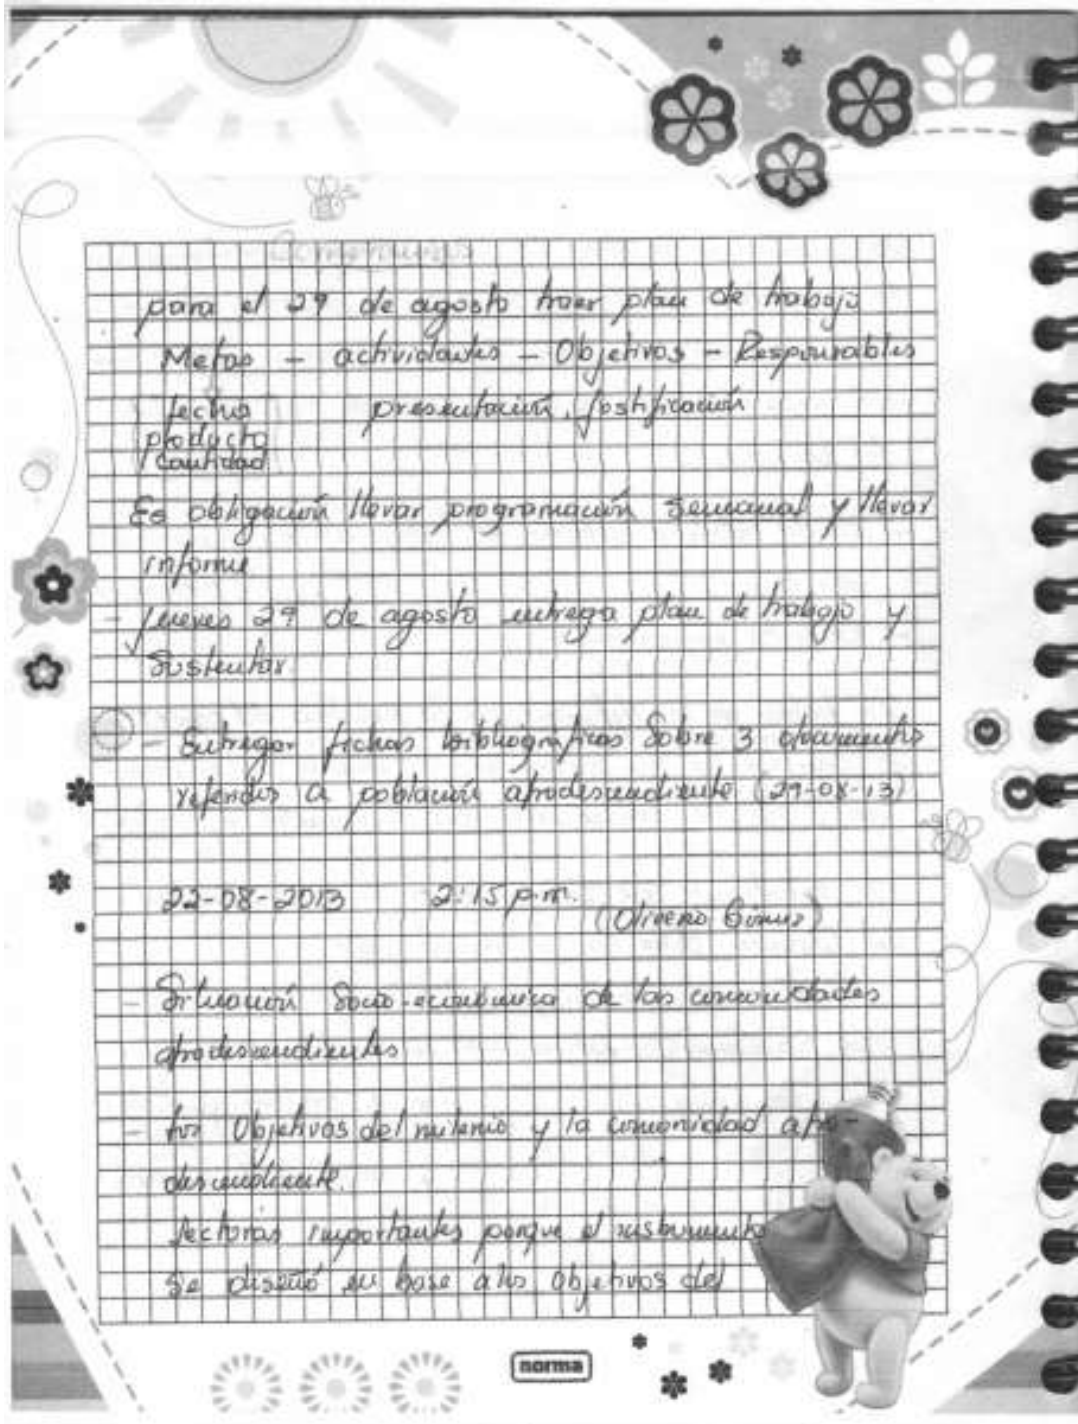 Compromisos
para el 29 de agosto traer plan de trabajo
Metas - actividades - Objetivos - Responsables
fecha presentación, justificación
producto
cantidad
Es obligación llevar programación semanal y llevar
informe
- jueves 29 de agosto entrega plan de trabajo y
sustentar
- Entregar fichas bibliográficas sobre 3 documentos
referidos a población afrodescendiente (29-08-13)
22-08-2013 2:15 p.m.
(Oliverio Gómez)
- Situación Socio-económica de las comunidades
afrodescendientes
- los Objetivos del milenio y la comunidad afro-
descendiente.
lecturas importantes porque el instrumento
se diseñó en base a los objetivos del
norma